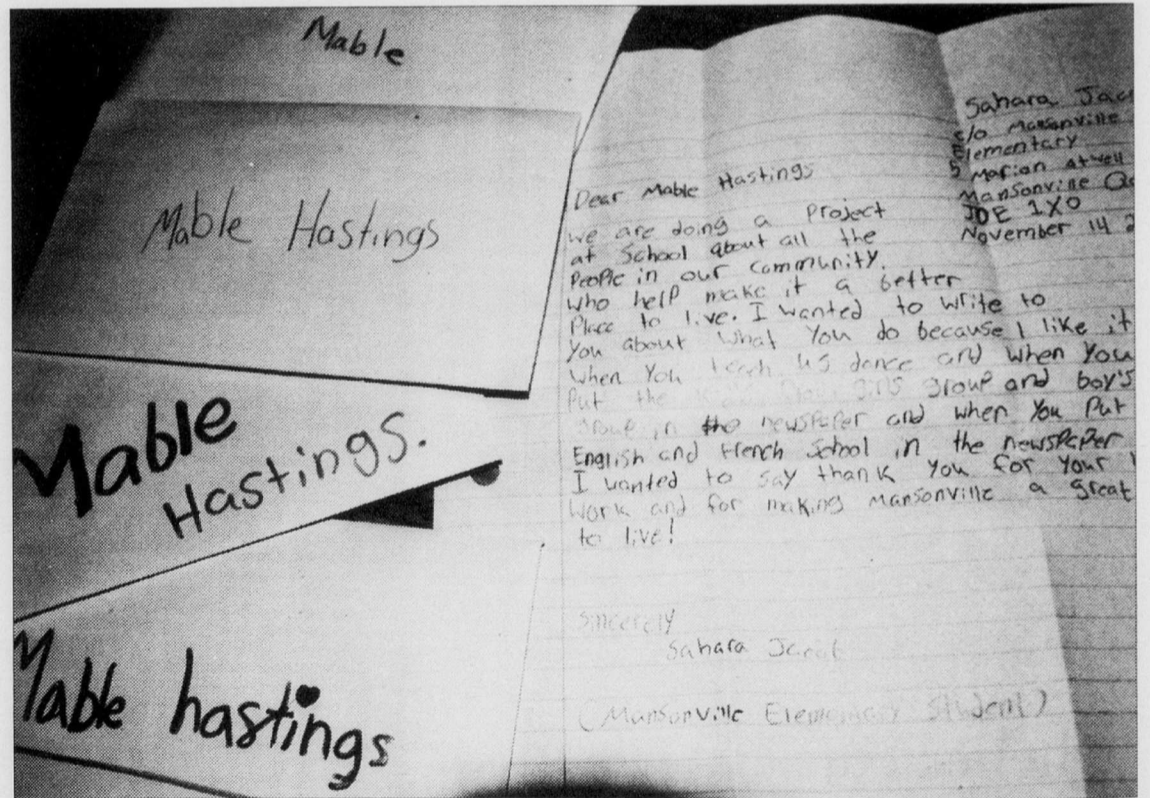 Mable
Mable Hastings
Mable
Hastings.
Mable hastings
Sahara
c/o Mansonville
Elementary
5 Marian Atwell
Mansonville
J0E 1X0
November 14
Dear Mable Hastings
we are doing a Project
at School about all the
People in our community.
who help make it a better
Place to live. I wanted to write to
You about what You do because I like it
when You teach us dance and when You
Put the girls group and boy's
group in the newspaper and when You Put
English and french School in the newspaper
I wanted to say thank you for your
work and for making Mansonville a great
to live!
Sincerely
Sahara
(Mansonville Elementary Student)